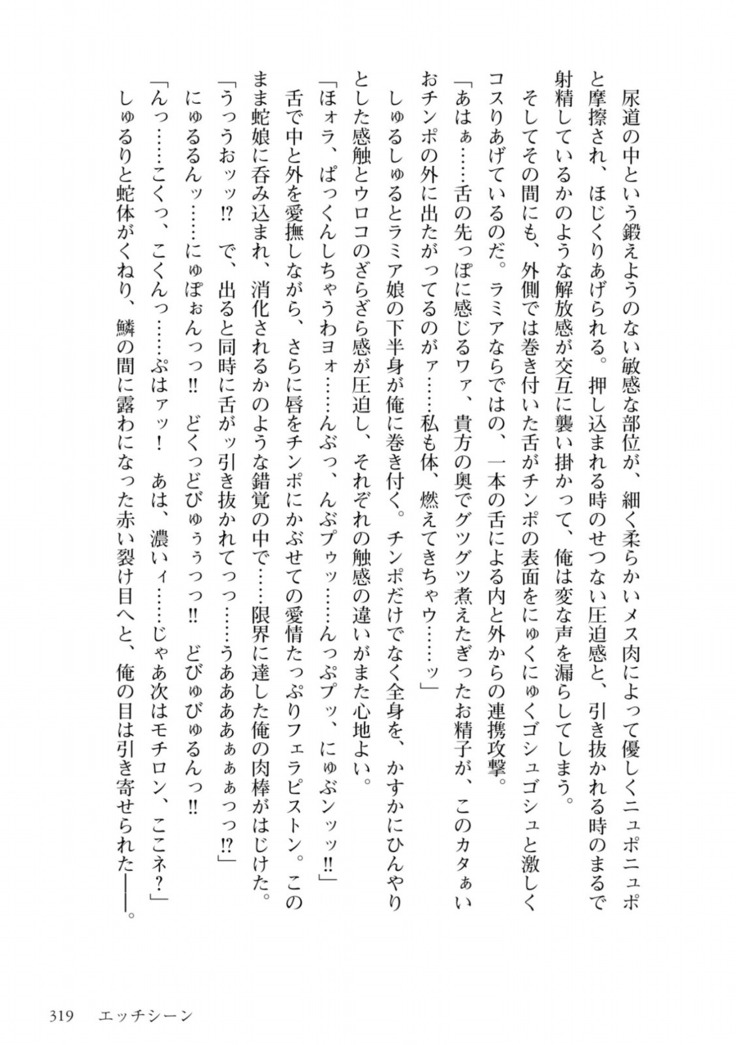 尿道の中という鍛えようのない敏感な部位が、細く柔らかいメス肉によって優しくニュポニュポ
と摩擦され、ほじくりあげられる。押し込まれる時のせつない圧迫感と、引き抜かれる時のまるで
射精しているかのような解放感が交互に襲い掛かって、俺は変な声を漏らしてしまう。
そしてその間にも、外側では巻き付いた舌がチンポの表面をにゅくにゅくゴシュゴシュと激しく
コスりあげているのだ。ラミアならではの、一本の舌による内と外からの連携攻撃。
「あはぁ……舌の先っぽに感じるワァ、貴方の奥でグツグツ煮えたぎったお精子が、このカタぁい
おチンポの外に出たがってるのがァ……私も体、燃えてきちゃウ……ッ」
しゅるしゅるとラミア娘の下半身が俺に巻き付く。チンポだけでなく全身を、かすかにひんやり
とした感触とウロコのざらざら感が圧迫し、それぞれの触感の違いがまた心地よい。
「ほォラ、ぱっくんしちゃうわヨォ……んぶっ、んぶプゥッ……んっぷプッ、にゅぶンッッ!!」
舌で中と外を愛撫しながら、さらに唇をチンポにかぶせての愛情たっぷりフェラピストン。この
まま蛇娘に呑み込まれ、消化されるかのような錯覚の中で……限界に達した俺の肉棒がはじけた。
「うっうおッッ!? で、出ると同時に舌がッ引き抜かれてっっ……うああああぁぁぁっっ!?」
にゅるるんッ……にゅぽぉんっっ!! どくっどびゅぅぅっっ!! どびゅびゅるんっ!!
「んっ……こくっ、こくんっ……ぷはァッ! あは、濃いィ……じゃあ次はモチロン、ここネ?」
しゅるりと蛇体がくねり、鱗の間に露わになった赤い裂け目へと、俺の目は引き寄せられた――。
319 エッチシーン